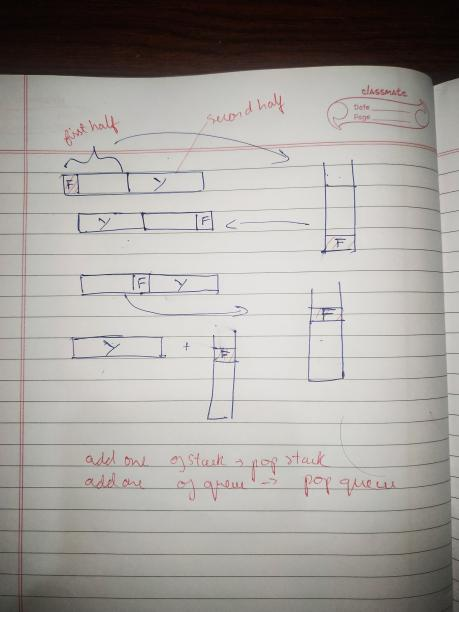 classmate
Date
Page
first half
second half
F
Y
Y
F
F
F
Y
F
Y
+
F
add one of stack → pop stack
add one of queue → pop queue